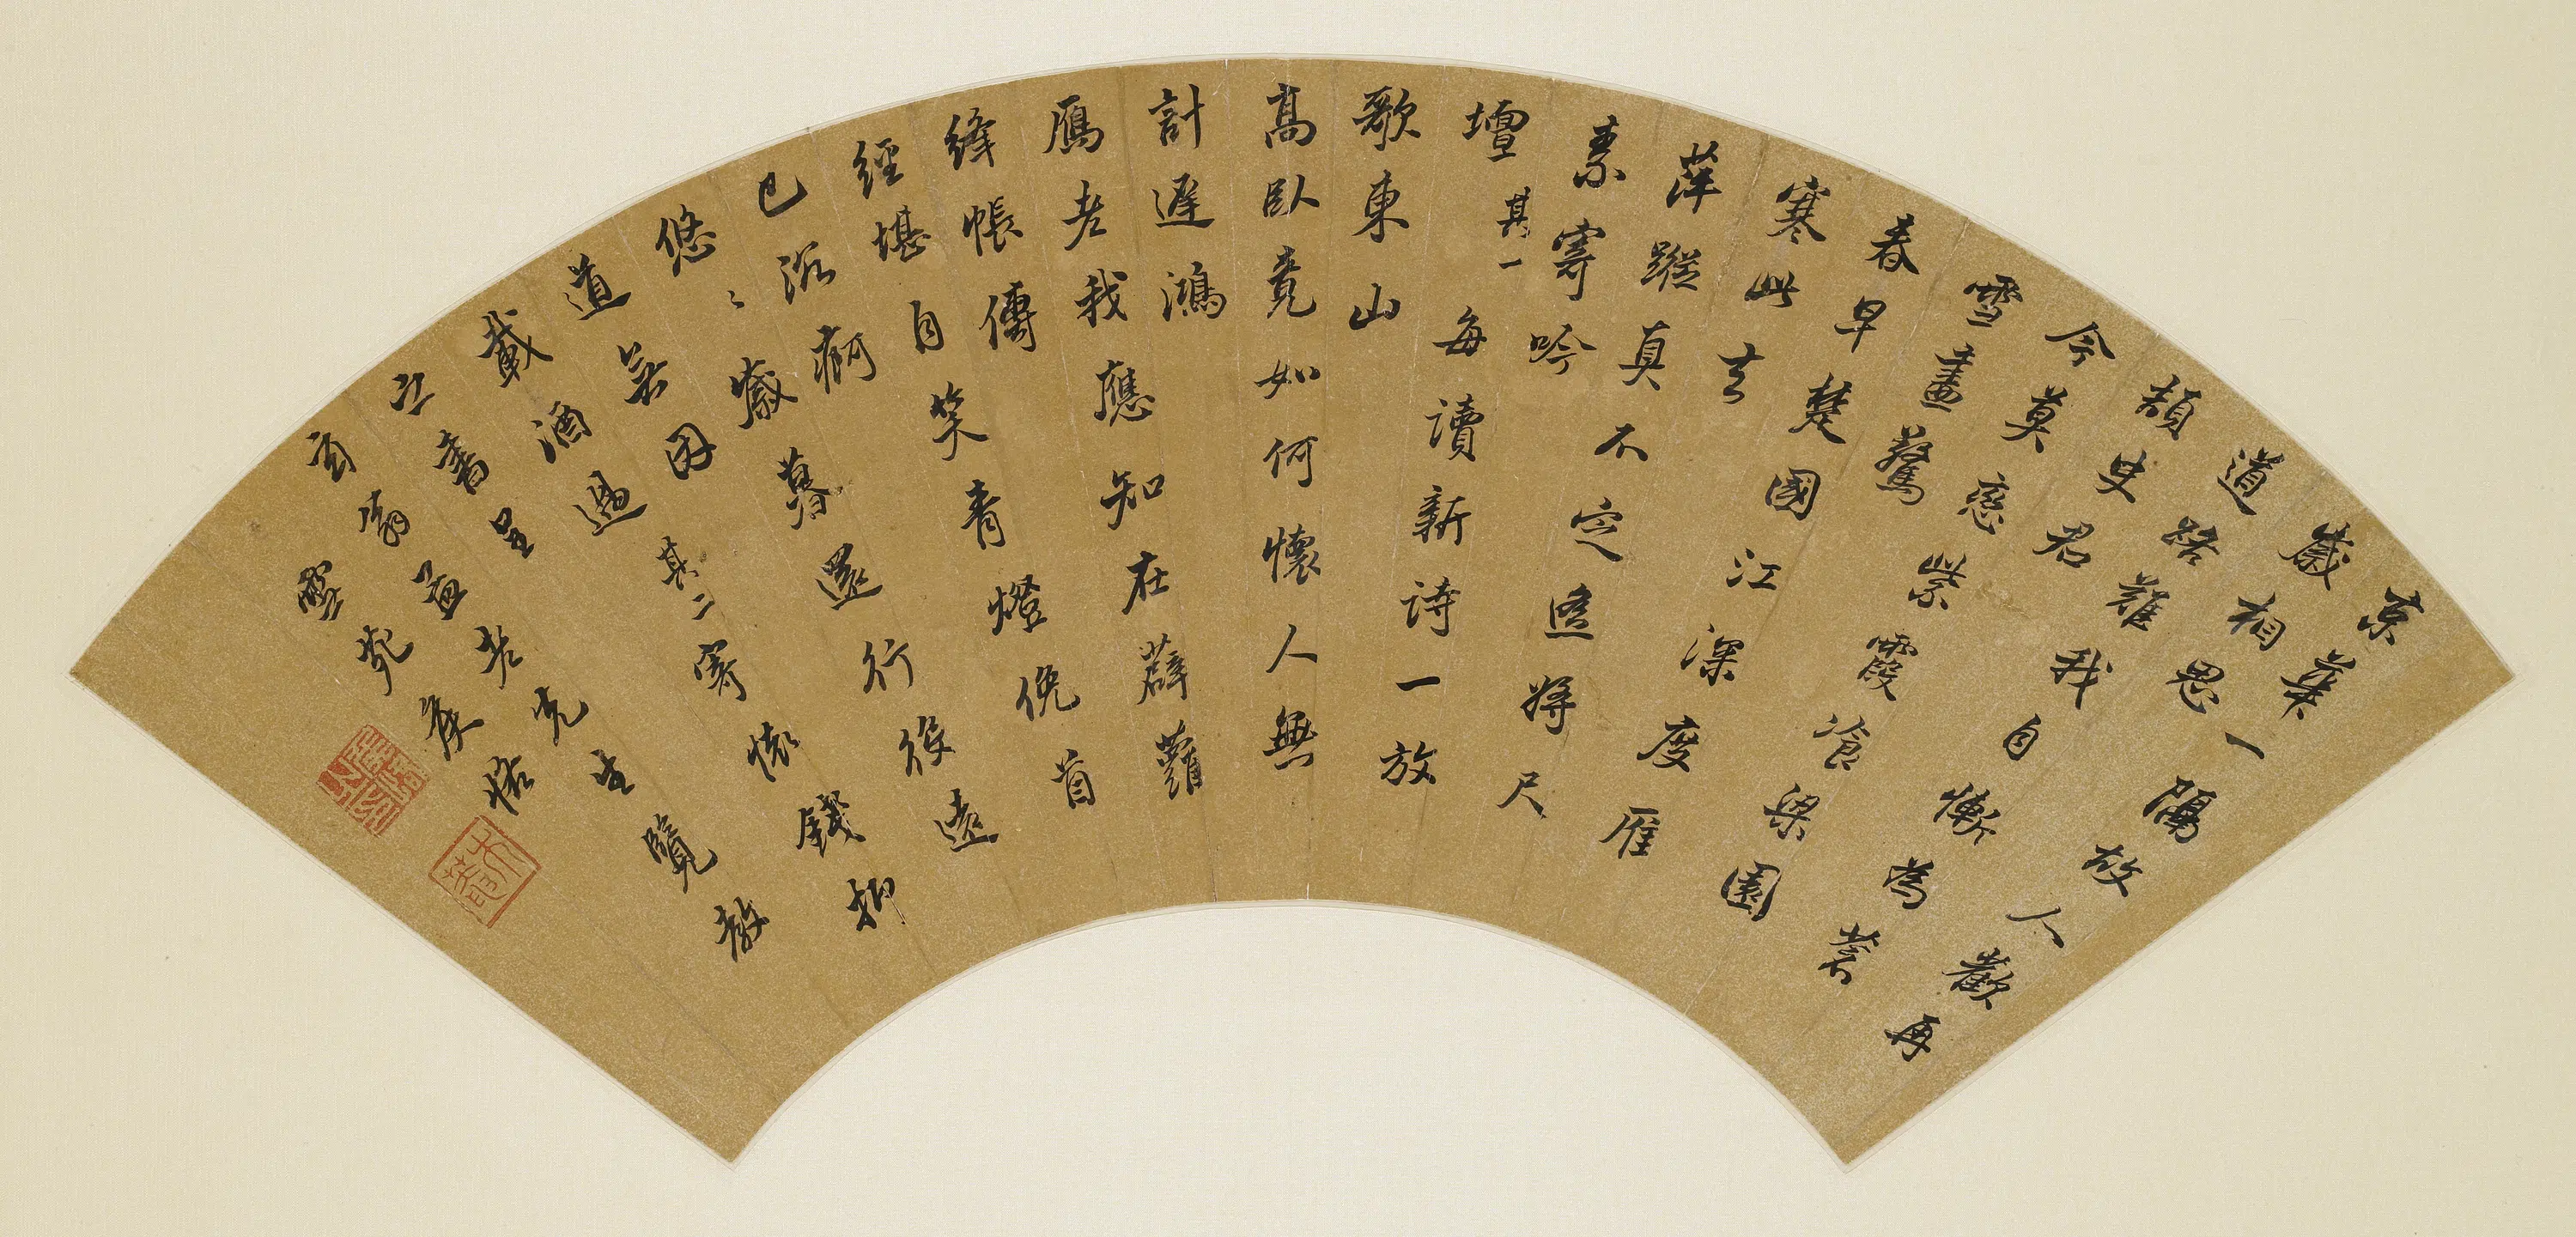 京華一隔故人歡再
歲相思
道路難我自慚為蒼
頡史君
今莫紫霞飡梁園
雪盡驚
春早楚國江深度雁
寒此去
萍蹤真不定遙將尺
素寄吟
壇 其一 每讀新詩一放
歌東山
高臥竟如何懷人無
計遲鴻
鴈老我應知在薜蘿
絳帳傳
經堪自笑青燈俛首
已沉痾
悠々歲暮還行役遠
道若因
載酒過 其二 寄懷錢抑
之書呈
玄翁老先生覽教
侯恪